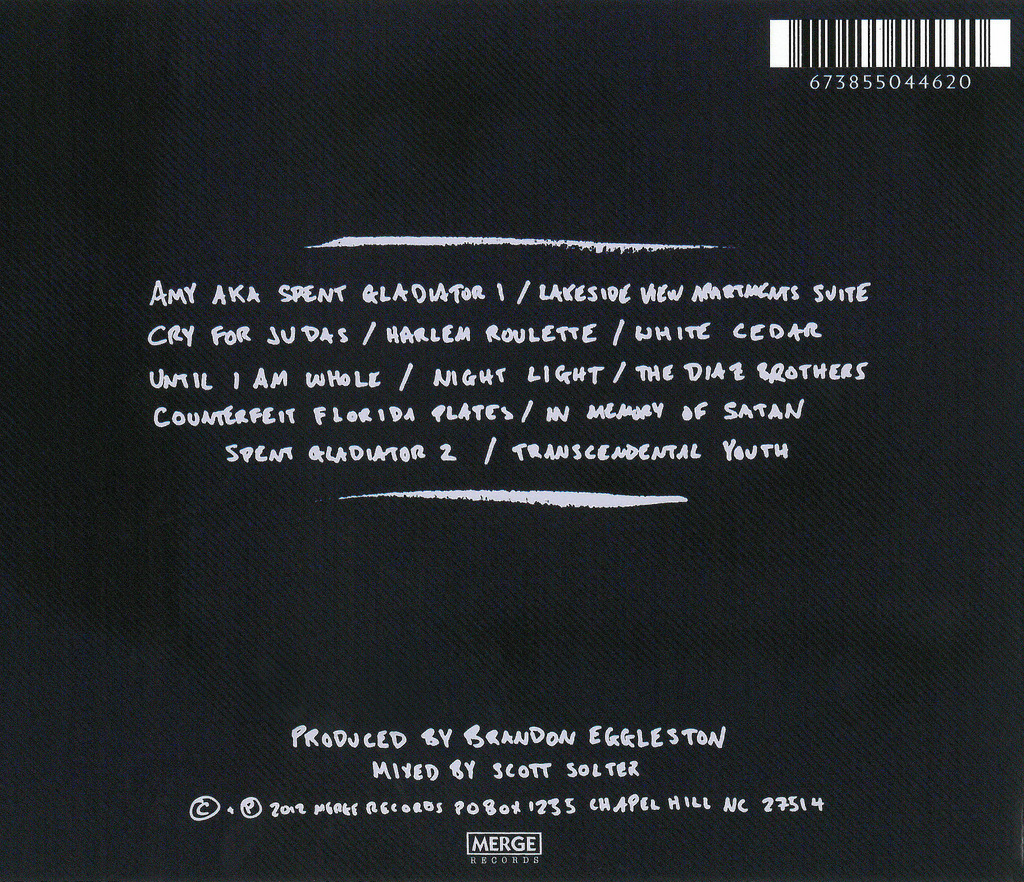 673855044620
AMY AKA SPENT GLADIATOR 1 / LAKESIDE VIEW APARTMENTS SUITE
CRY FOR JUDAS / HARLEM ROULETTE / WHITE CEDAR
UNTIL I AM WHOLE / NIGHT LIGHT / THE DIAZ BROTHERS
COUNTERFEIT FLORIDA PLATES / IN MEMORY OF SATAN
SPENT GLADIATOR 2 / TRANSCENDENTAL YOUTH
PRODUCED BY BRANDON EGGLESTON
MIXED BY SCOTT SOLTER
© + ℗ 2012 MERGE RECORDS PO BOX 1235 CHAPEL HILL NC 27514
MERGE
RECORDS